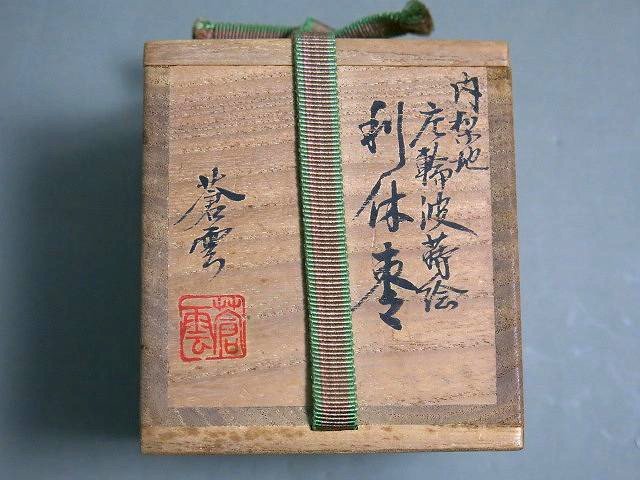 内梨地
片輪波蒔絵
利休棗
蒼雲
蒼雲